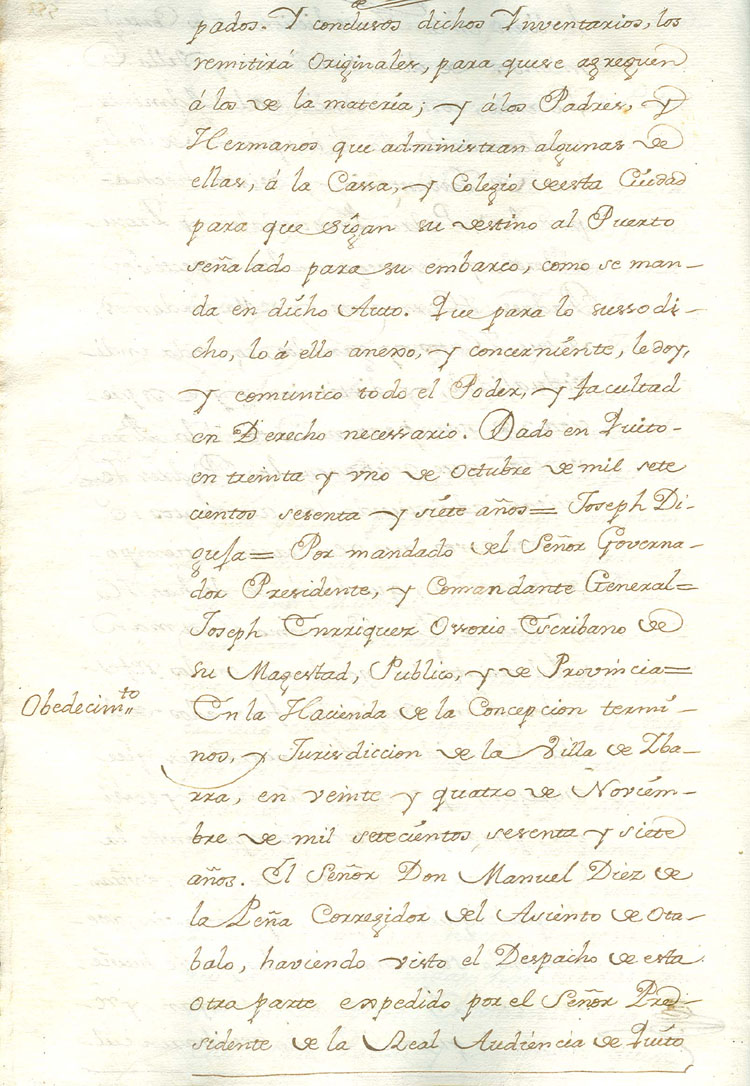 pados. Y conclusos dichos Ynventarios, los
remitirá Originales, para que se agreguen
á los de la matería; y á los Padres, y
Hermanos que administran algunas de
ellas, á la Cassa, y Colegio de esta Ciudad
para que sigan su destino al Puerto
señalado para su embarco, como se man-
da en dicho Auto. Que para lo susso di-
cho, lo á ello anexo, y concerniente, le doy,
y comunico todo el Poder, y facultad
en Derecho necessario. Dado en Quito
en treinta y uno de Octubre de mil sete
cientos sesenta y siete años = Joseph Di-
guja = Por mandado del Señor Governa-
dor Presidente, y Comandante General =
Joseph Enrriquez Ossorio Escribano de
su Magestad, Publico, y de Provincia =
Obedecim.to En la Hacienda de la Concepcion termi-
nos, y Jurisdiccion de la Villa de Yba-
rra, en veinte y quatro de Noviem-
bre de mil setecientos sesenta y siete
años. El Señor Don Manuel Diez de
la Peña Corregidor del Asiento de Ota-
balo, haviendo visto el Despacho de esta
otra parte expedido por el Señor Pre-
sidente de la Real Audiencia de Quito